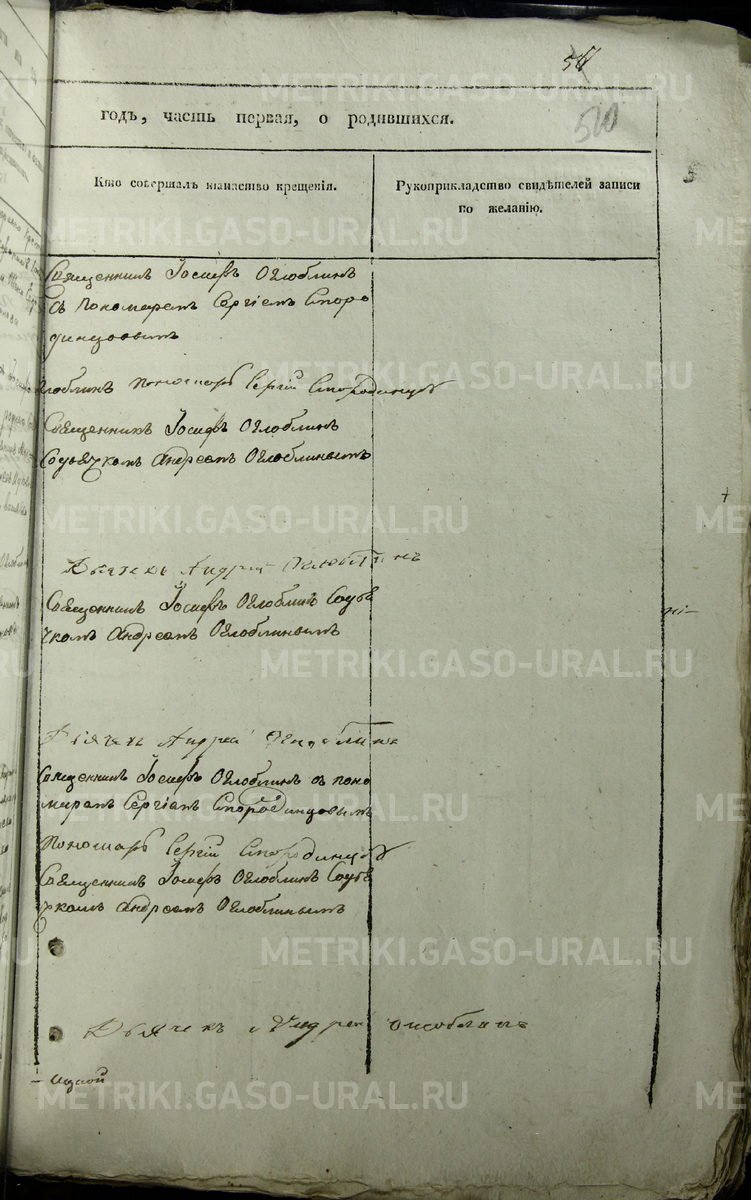 510
годъ, часть первая, о родившихся.
Кто совершалъ таинство крещенія.
Рукоприкладство свидѣтелей записи
по желанію.
Священникъ Іосифъ Оглоблинъ
съ пономаремъ Сергіемъ Сморо
динцовымъ
пономарь Сергій Смородинцовъ
Священникъ Іосифъ Оглоблинъ
Содьячкомъ Андреемъ Оглоблинымъ
Дьячекъ Андрей Оглоблинъ
Священникъ Іосифъ Оглоблинъ Содья
чкомъ Андреемъ Оглоблинымъ
Дьячекъ Андрей Оглоблинъ
Священникъ Іосифъ Оглоблинъ съ поно
маремъ Сергіемъ Смородинцовымъ
Пономарь Сергій Смородинцовъ
Священникъ Іосифъ Оглоблинъ Содья
чкомъ Андреемъ Оглоблинымъ
Дьячекъ Андрей Оглоблинъ
METRIKI.GASO-URAL.RU